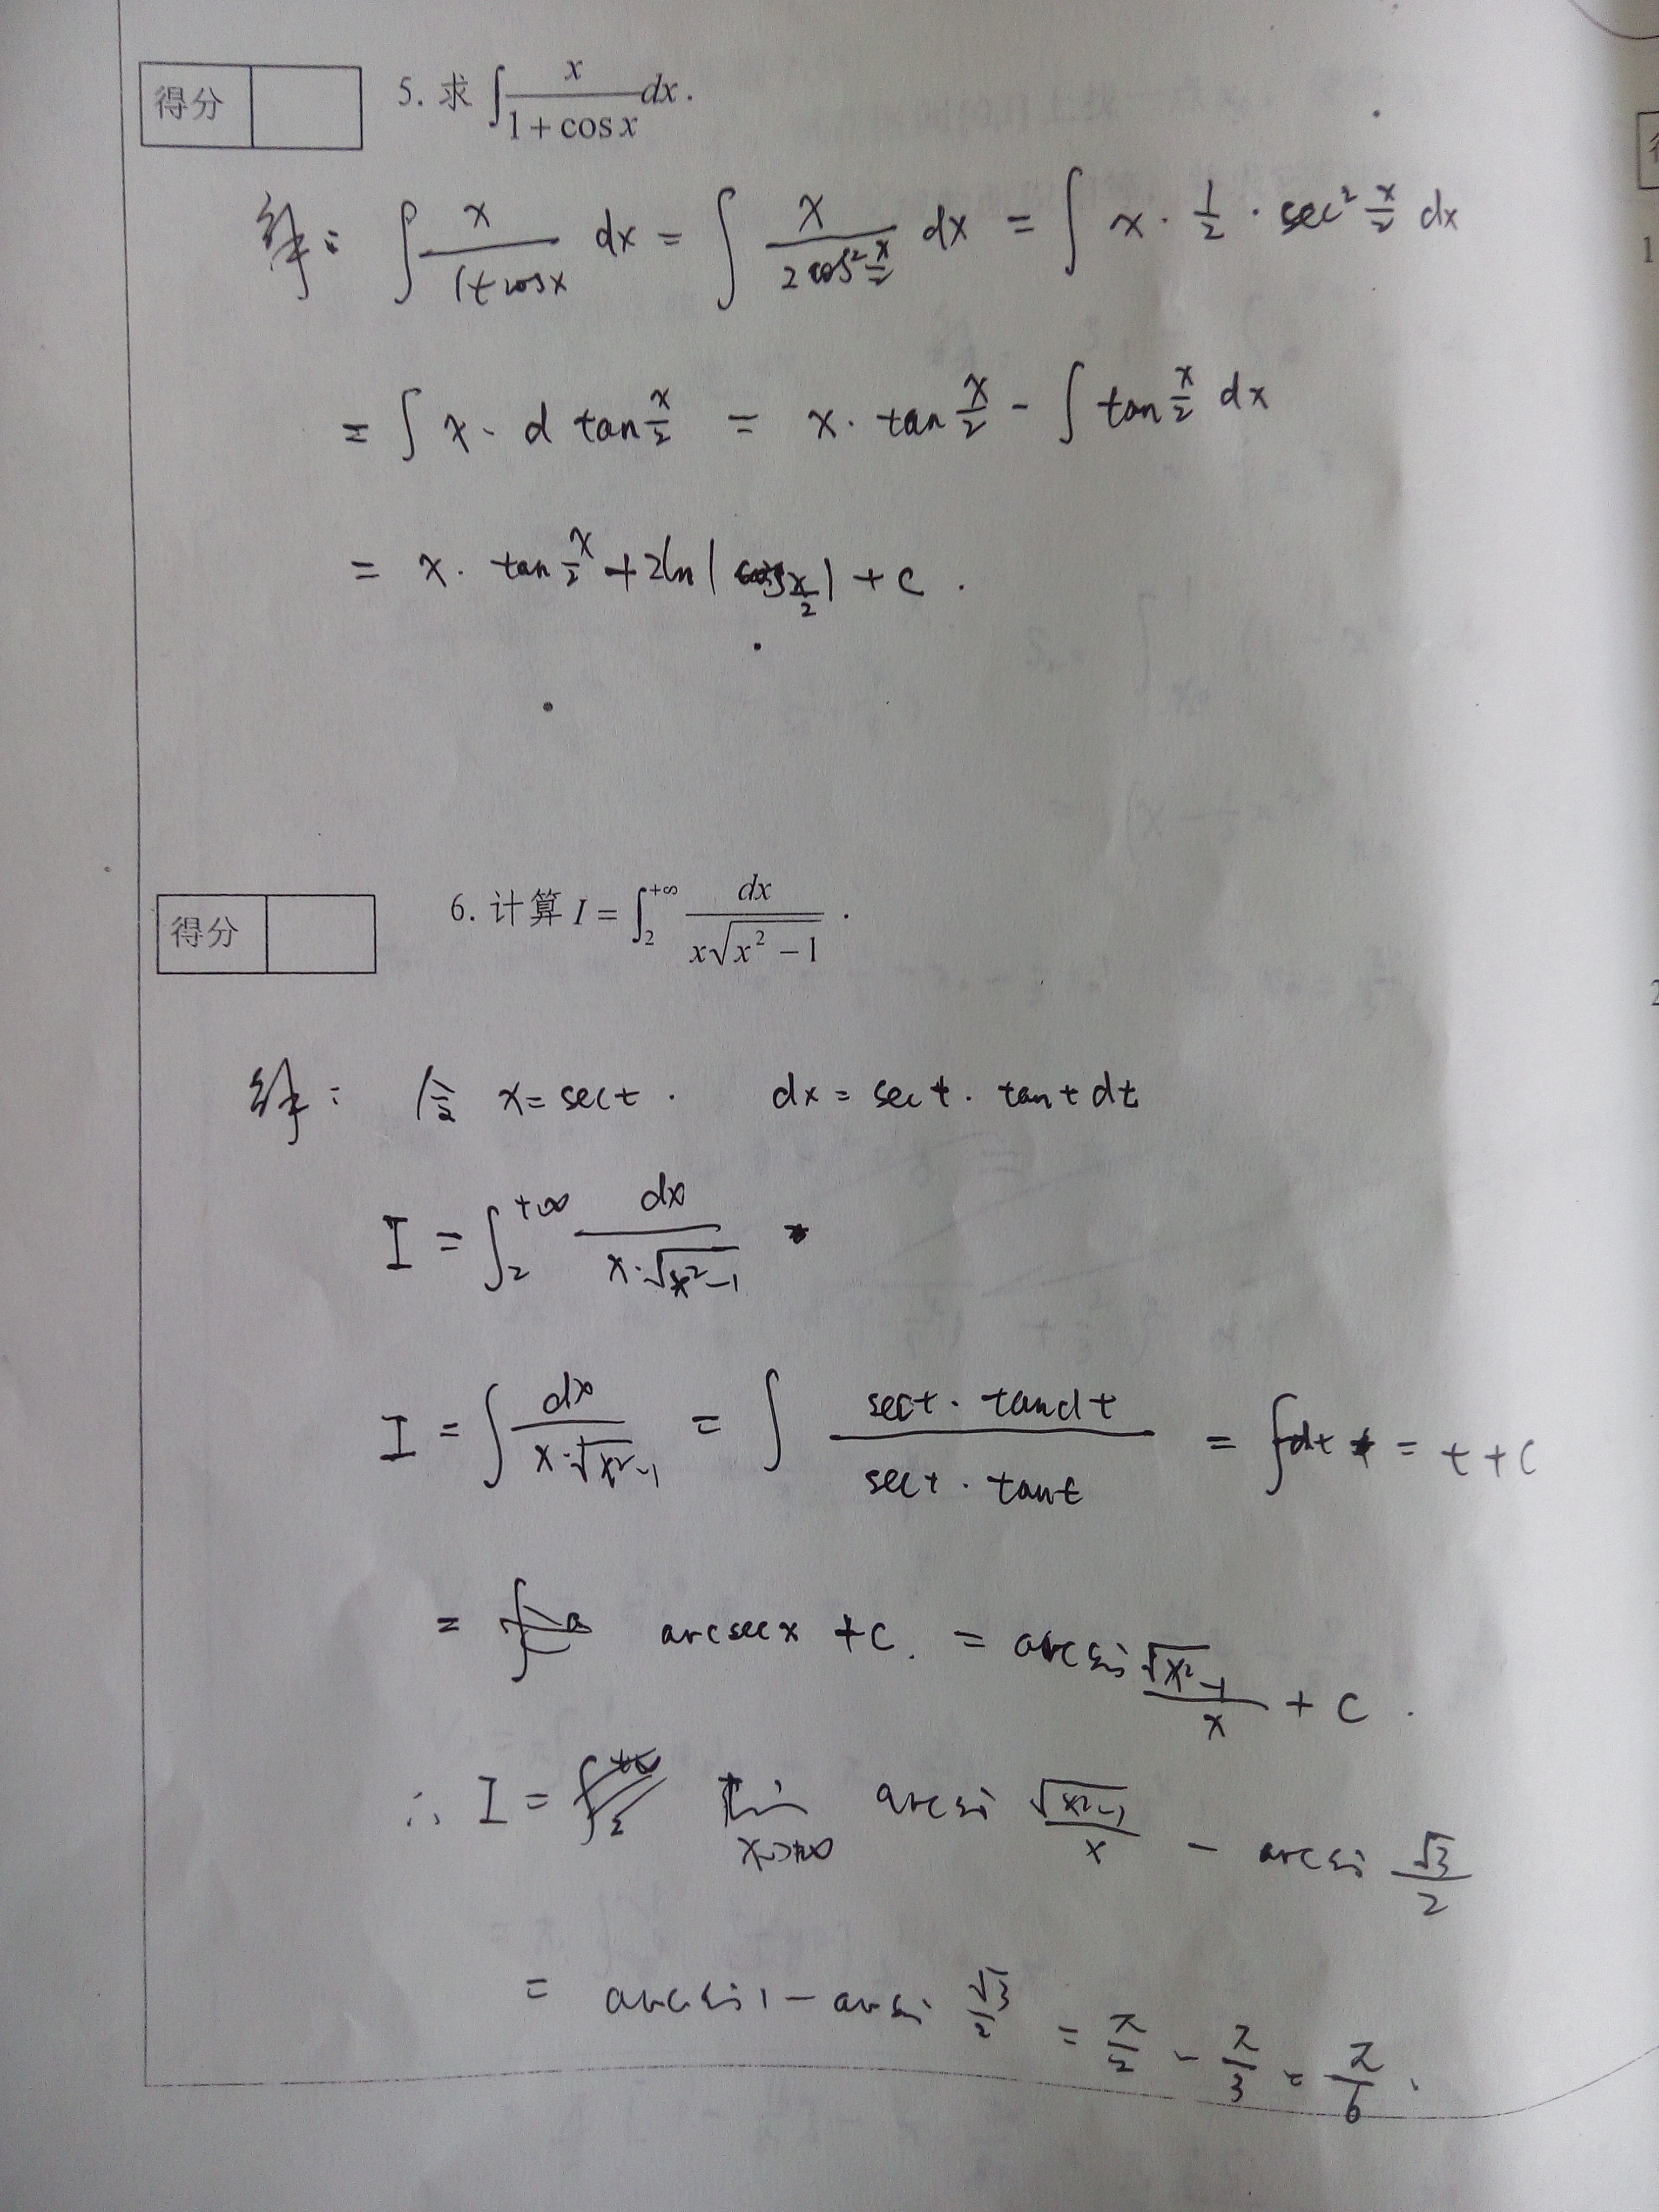 得分
5. 求 ∫ x/(1+cos x) dx.
解: ∫ x/(1+cosx) dx = ∫ x/(2cos²(x/2)) dx = ∫ x · 1/2 · sec² x/2 dx
= ∫ x · d tan x/2 = x · tan x/2 - ∫ tan x/2 dx
= x · tan x/2 + 2ln|cos x/2| + c .
得分
6. 计算 I = ∫₂^{+∞} dx/(x√(x²-1)) .
解: 令 x = sect . dx = sect · tant dt
I = ∫₂^{+∞} dx/(x·√(x²-1))
I = ∫ dx/(x·√(x²-1)) = ∫ (sect · tandt)/(sect · tant) = ∫dt = t+C
= arcsecx + C. = arcsin √(x²-1)/x + C .
∴ I = lim_{x→+∞} arcsin √(x²-1)/x - arcsin √3/2
= arcsin1 - arcsin √3/2 = π/2 - π/3 = π/6 .
1
2